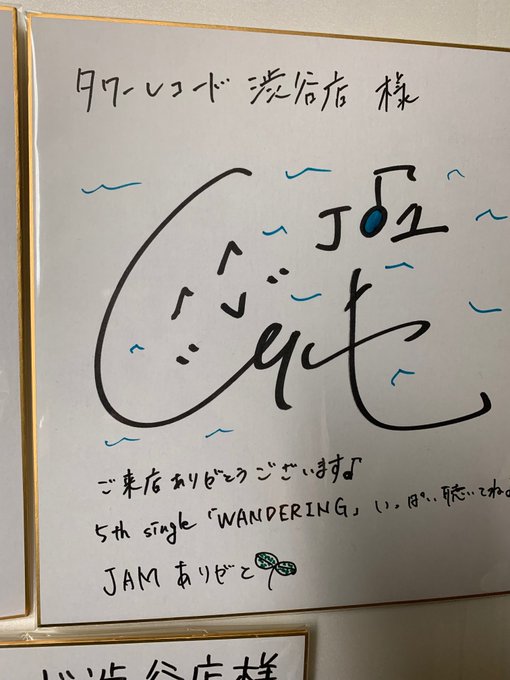 タワーレコード 渋谷店 様
JO1
ご来店ありがとうございます♪
5th single「WANDERING」いっぱい聴いてね。
JAM ありがと
ド渋谷店様